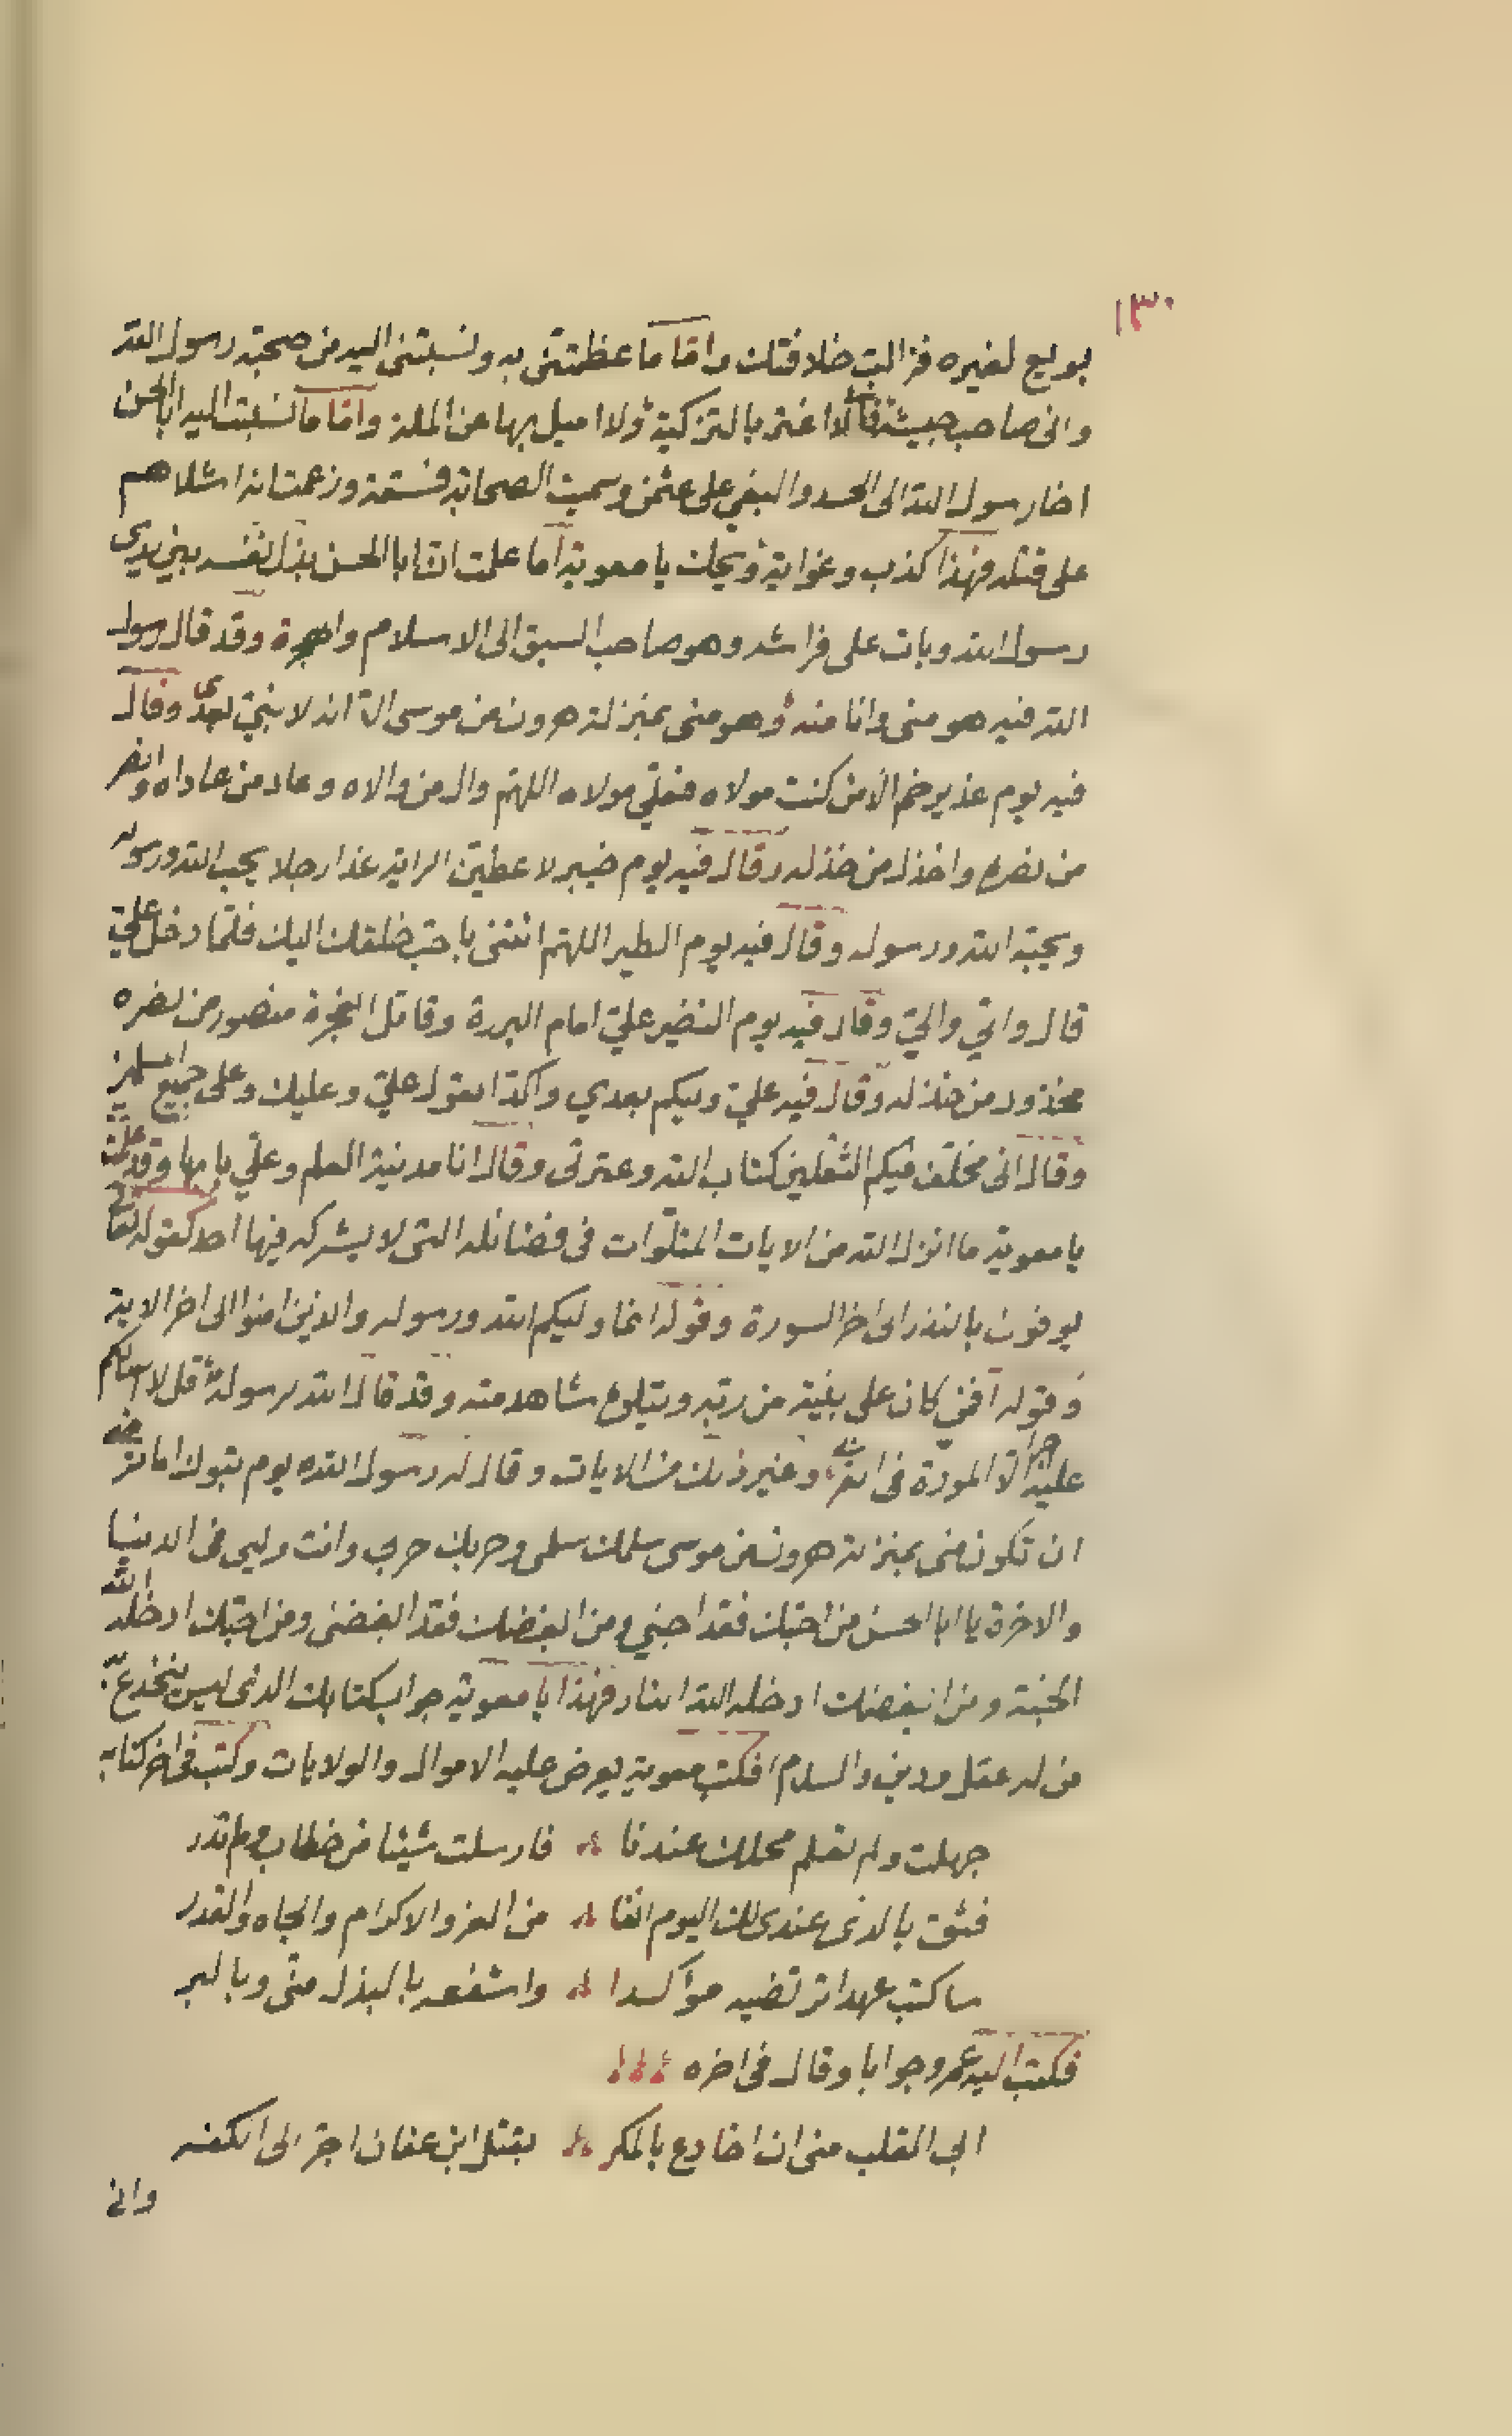 ١٣٠
بويع لغيره فزالت خلافتك واما ما عظمتنى به ونسبتنى اليه من صحبة رسول الله
وانى صاحب جيشه فلا اغتر بالتزكية ولا اميل بها عن الملة واما ما نسبت اليه ابا الحسن
اخا رسول الله الى الحسد والبغي على عثمن وسميت الصحابة فسقة وزعمت انه اشلاهم
على قتله فهذا كذب وغواية ويحك يا معوية اما علمت ان ابا الحسن بذل نفسه بين يدي
رسول الله وبات على فراشه وهو صاحب السبق الى الاسلام والهجرة وقد قال رسول
الله فيه هو منى وانا منه وهو منى بمنزلة هرون من موسى الا انه لا نبيّ بعدى وقال
فيه يوم غدير خم الا من كنت مولاه فعليّ مولاه اللهم وال من والاه وعاد من عاداه وانصر
من نصره واخذل من خذله وقال فيه يوم خيبر لاعطين الراية غدا رجلا يحب الله ورسوله
ويحبه الله ورسوله وقال فيه يوم الطير اللهم ائتنى باحب خلقك اليك فلما دخل عليّ
قال واليّ واليّ وقال فيه يوم النضير عليّ امام البررة وقاتل الفجرة منصور من نصره
مخذول من خذله وقال فيه عليّ وليكم بعدي واكد القول عليّ وعليك وعلى جميع المسلمين
وقال انى مخلف فيكم الثقلين كتاب الله وعترتى وقال انا مدينة العلم وعليّ بابها وقد علمت
يا معوية ما انزل الله من الايات المتلوات فى فضائله التى لا يشركه فيها احد كقوله تعالى
يوفون بالنذر الى اخر السورة وقوله انما وليكم الله ورسوله والذين امنوا الى اخر الاية
وقوله افمن كان على بينة من ربه ويتلوه شاهد منه وقد قال الله لرسوله قل لا اسالكم
عليه اجرا الا المودة فى القربى وغير ذلك من الايات وقال له رسول الله يوم تبوك اما ترضى
ان تكون منى بمنزلة هرون من موسى سلمك سلمى وحربك حربي وانت وليي فى الدنيا
والاخرة يا ابا الحسن من احبك فقد احبني ومن ابغضك فقد ابغضنى ومن احبك ادخله الله
الجنة ومن ابغضك ادخله الله النار فهذا يا معوية جواب كتابك الذى ليس ينخدع به
من له عقل ودين والسلام فكتب معوية يعرض عليه الاموال والولايات وكتب فى اخر كتابه
جهلت ولم تعلم محلك عندنا فارسلت شيئا من خطاب ولم تدر
فثق بالذى عندى لك اليوم انفا من العز والاكرام والجاه والقدر
ساكتب عهدا ترتضيه مؤاكدا واشفعه بالبذل منّى وبالبر
فكتب اليه عمرو جوابا وقال فى اخره
ابي القلب منى ان اخادع بالمكر بقتل ابن عفان اجر الى الكفر
وانى